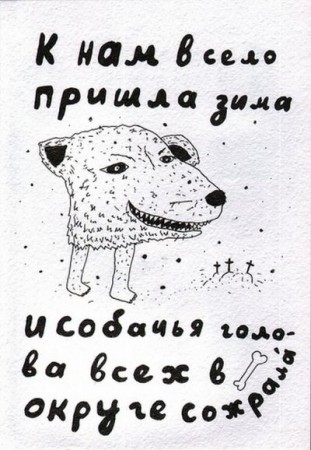 К нам в село
пришла зима
и собачья голо-
ва всех в
округе сожрала